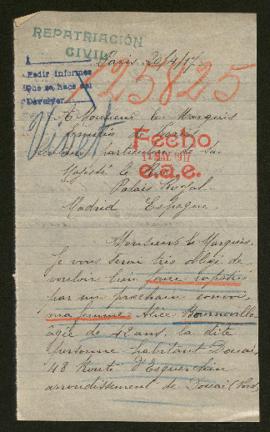 REPATRIACIÓN
CIVIL
Paris 26/4/17
Pedir informes
Que se haca del
Devolver
125825
A Monsieur le Marquis
secrétaire particulier de Sa
Majesté le Roi
Fecho
11 MAY 917
e.a.e.
Palais Royal
Madrid Espagne
Monsieur le Marquis
Je vous serai très obligé de
vouloir bien faire rapatrier
par un prochain convoi,
ma femme, Alice Bonneville
âgée de 42 ans. la dite
personne habitant Douai,
48 Route d'Esquerchin
arrondissement de Douai Nord,